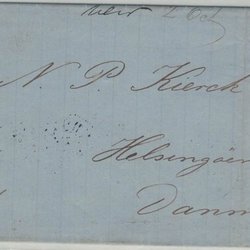 N. P. Kierck
Helsingör
Danm